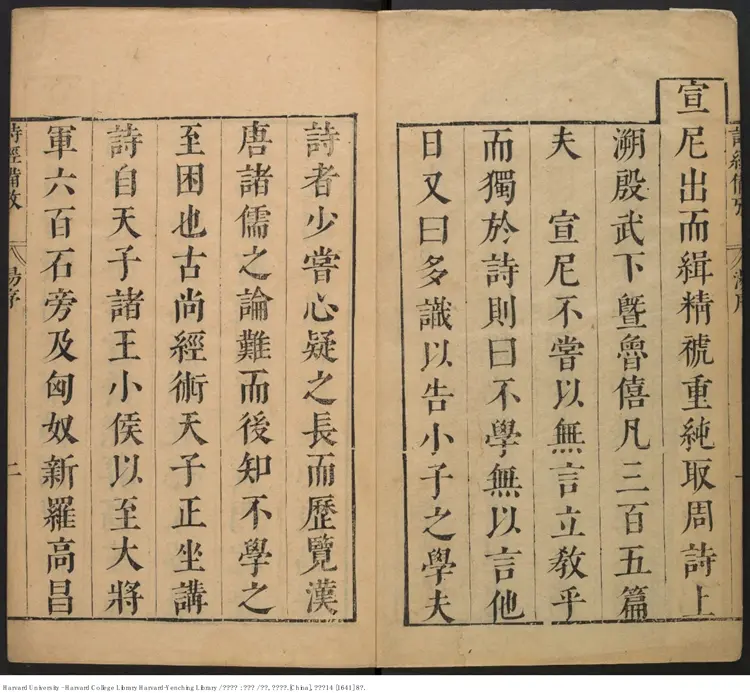 宣尼出而緝精禠重純取周詩上
溯殷武下曁魯僖凡三百五篇
夫　宣尼不嘗以無言立敎乎
而獨於詩則曰不學無以言他
日又曰多識以告小子之學夫
詩者少嘗心疑之長而歷覽漢
唐諸儒之論難而後知不學之
至困也古尚經術天子正坐講
詩自天子諸王小侯以至大將
軍六百石旁及匈奴新羅高昌
詩經備攷
湯序
二
Harvard University - Harvard College Library Harvard-Yenching Library / ???? : ??? / ??, ????. [China], ???14 [1641] 8?.